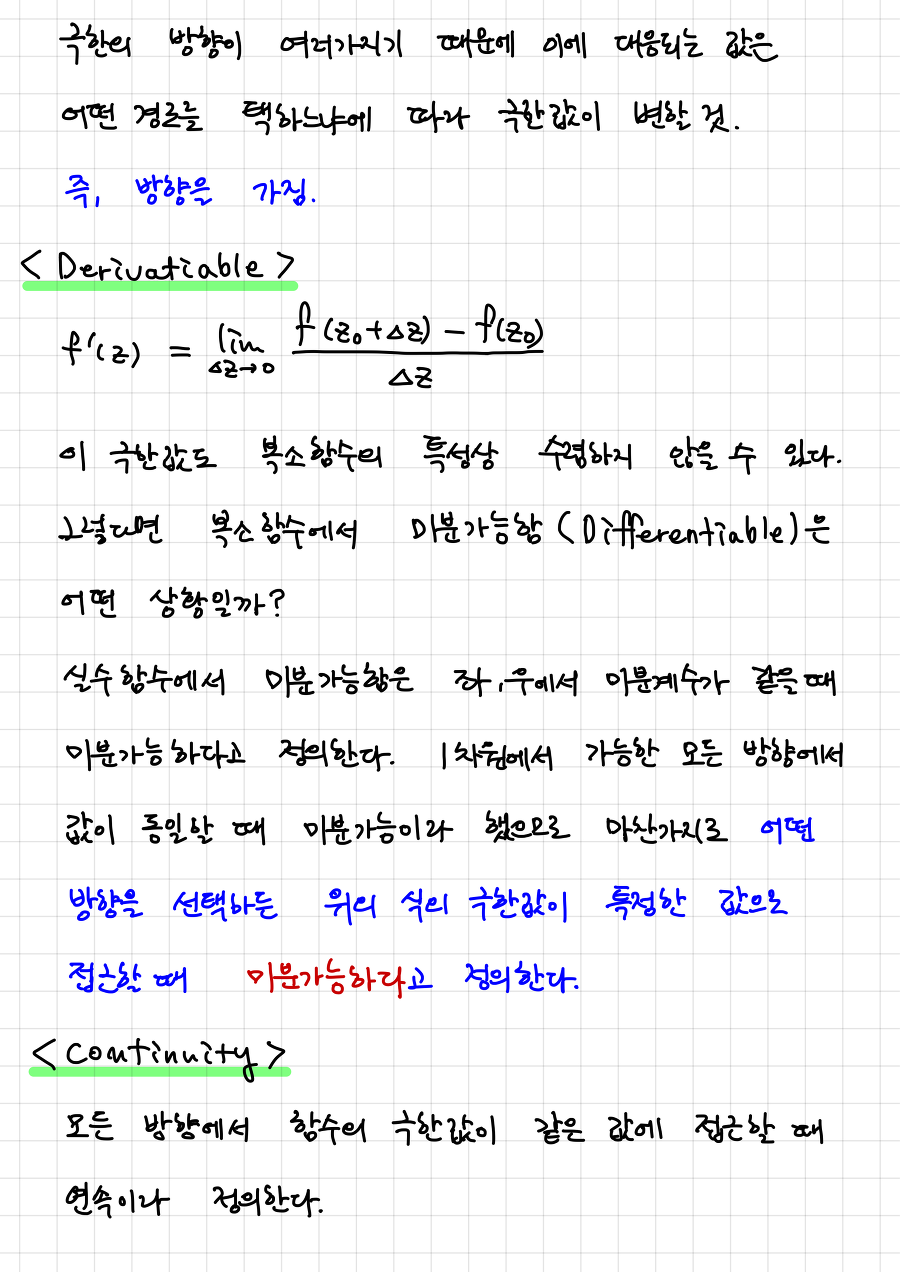 극한의 방향이 여러가지기 때문에 이에 대응되는 값은
어떤 경로를 택하느냐에 따라 극한값이 변할 것.
즉, 방향을 가짐.
< Derivatiable >
f'(z) = lim Δz→0 f(z₀+Δz) - f(z₀) / Δz
이 극한값도 복소함수의 특성상 수렴하지 않을 수 있다.
그렇다면 복소함수에서 미분가능함 (Differentiable)은
어떤 상황일까?
실수함수에서 미분가능함은 좌,우에서 미분계수가 같을 때
미분가능하다고 정의한다. 1차원에서 가능한 모든 방향에서
값이 동일할 때 미분가능이라 했으므로 마찬가지로 어떤
방향을 선택하든 위의 식의 극한값이 특정한 값으로
접근할 때 미분가능하다고 정의한다.
< Continuity >
모든 방향에서 함수의 극한값이 같은 값에 접근할 때
연속이라 정의한다.